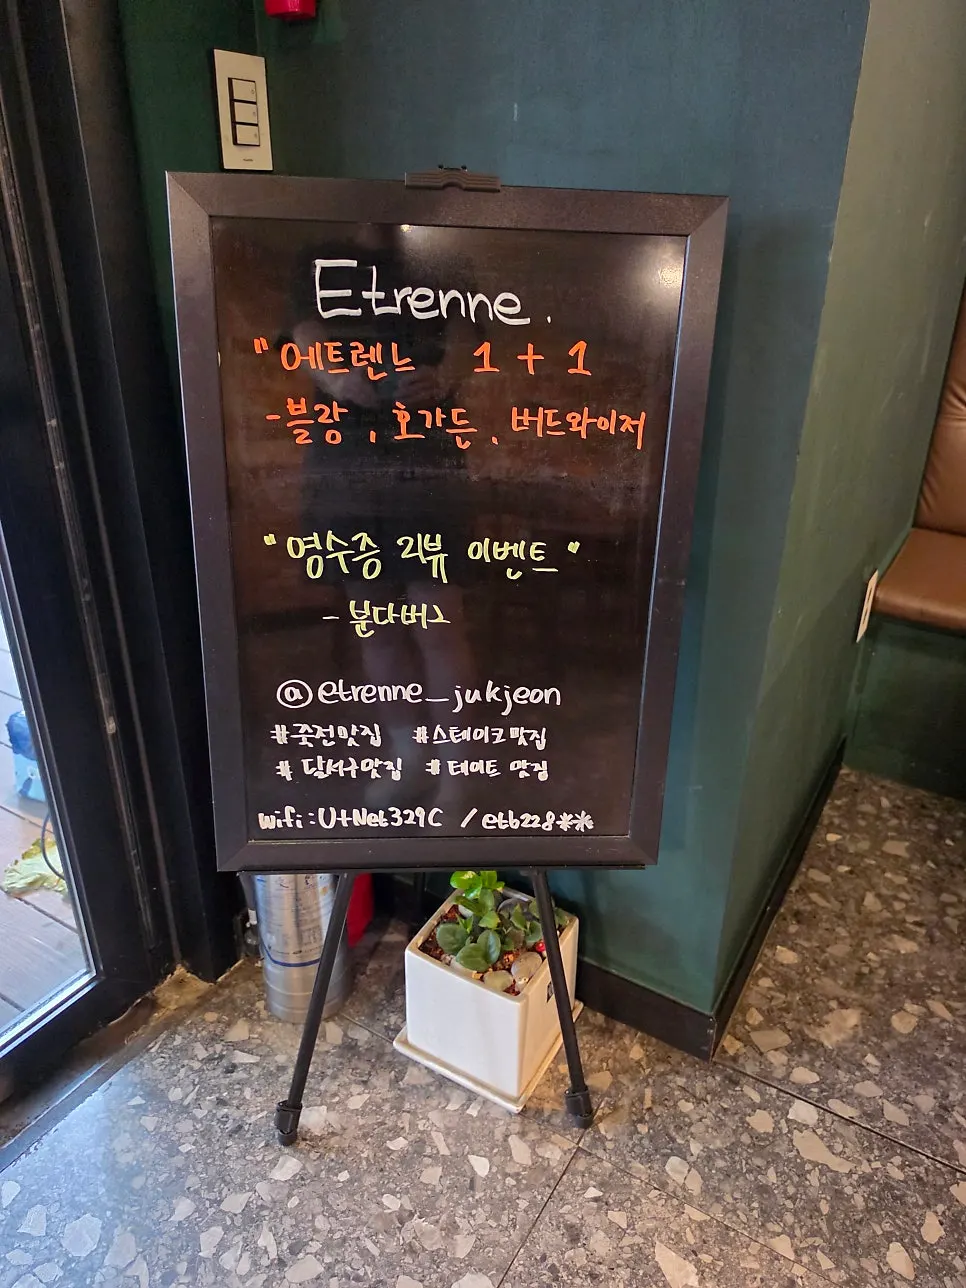 Etrenne.
"에트렌느 1+1
-블랑, 호가든, 버드와이저
"영수증 리뷰 이벤트"
- 분다버그
@etrenne_jukjeon
#죽전맛집 #스테이크맛집
#달서구맛집 #데이트 맛집
wifi:U+Net329C / etb228**